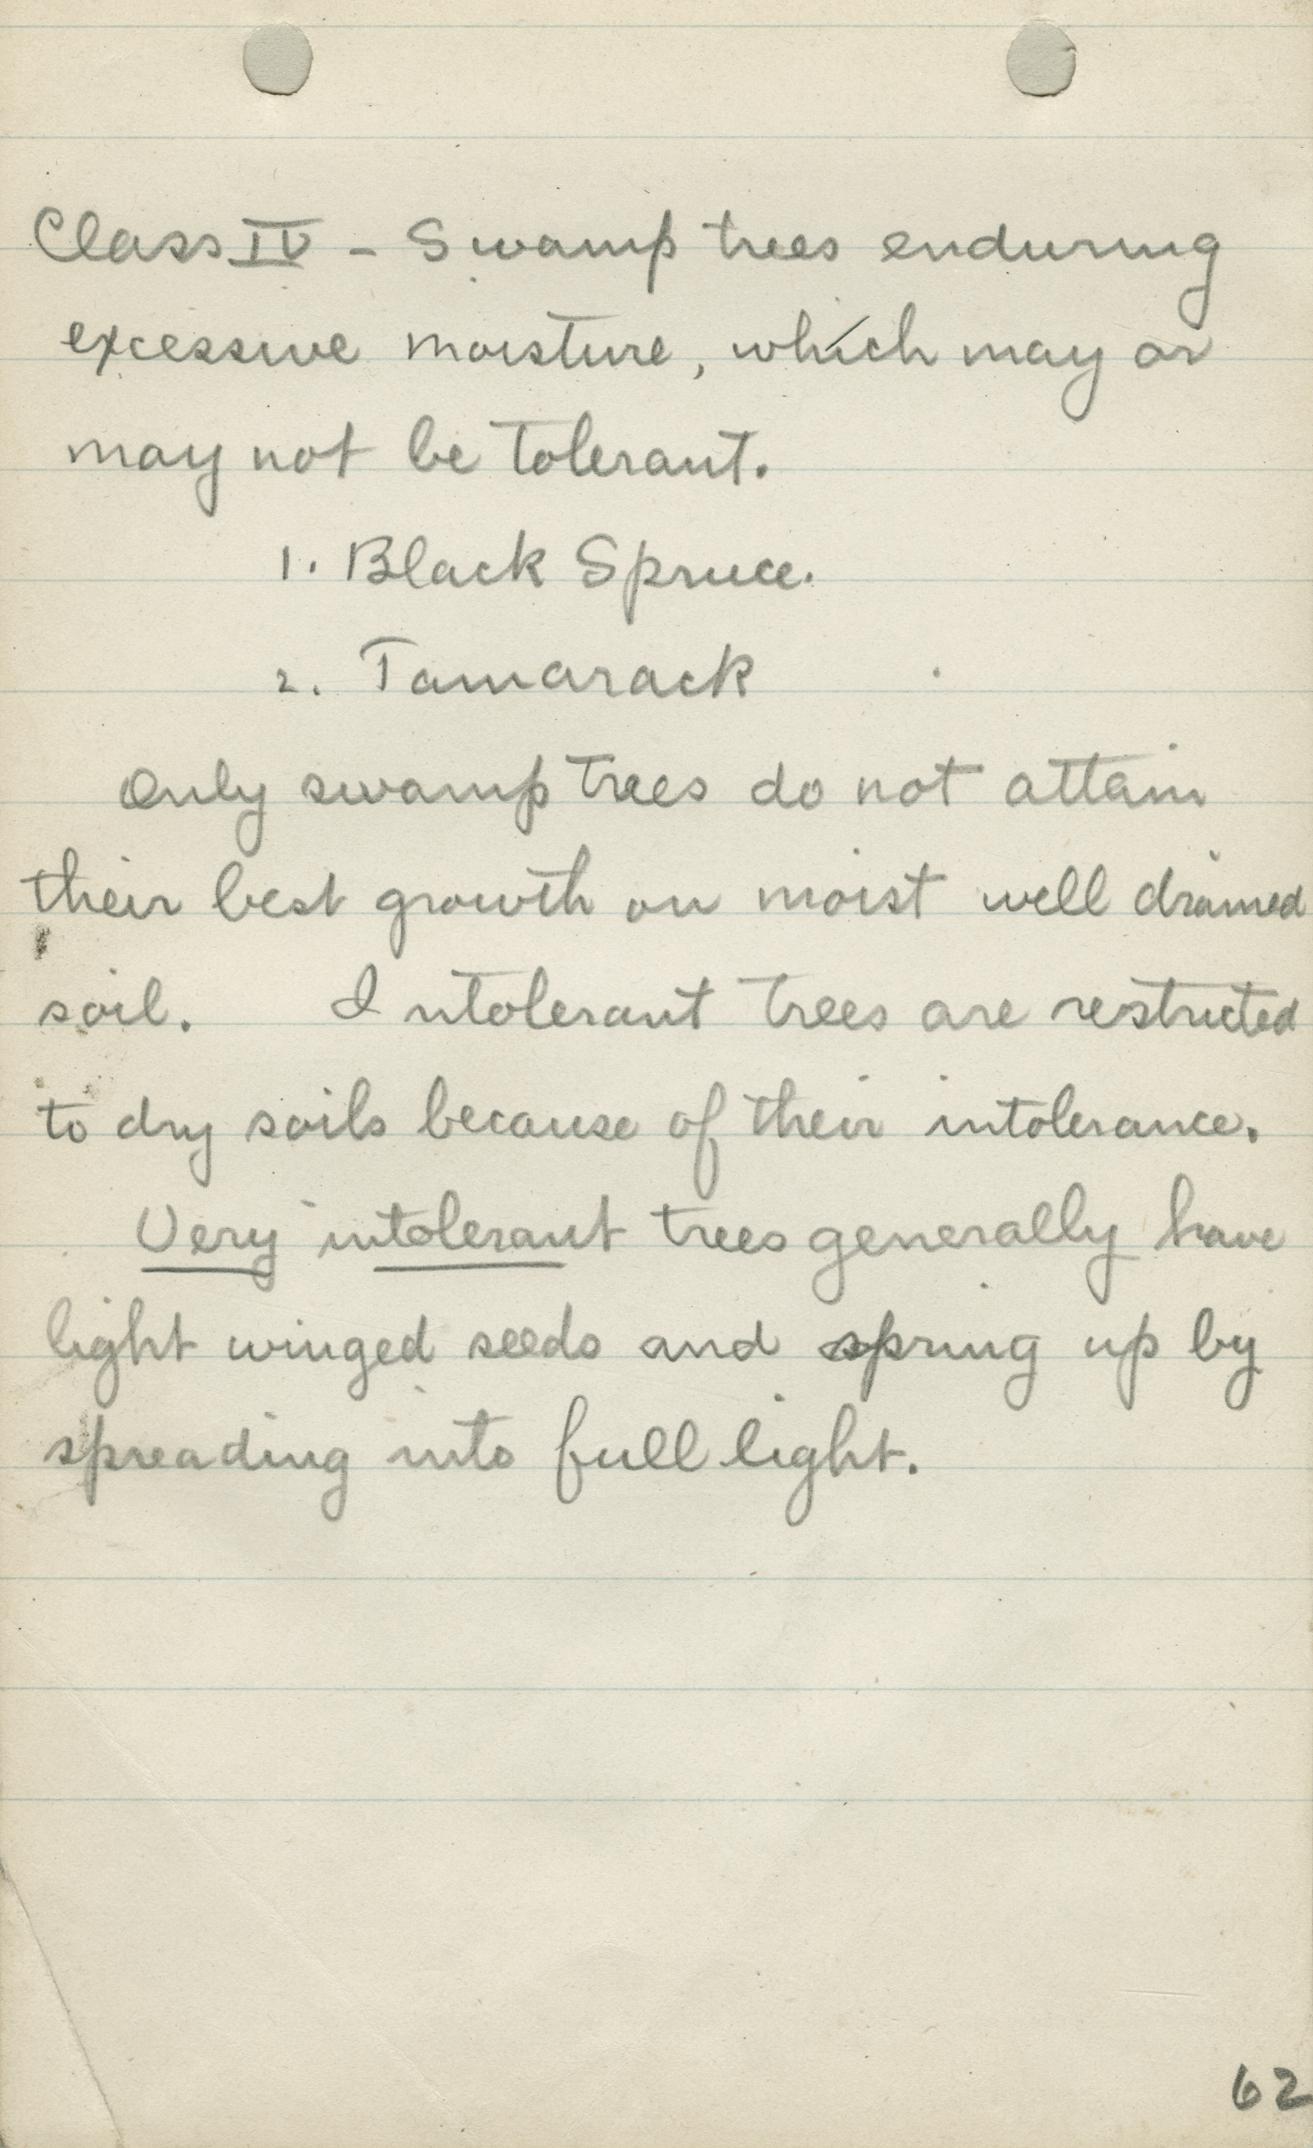 Class IV - Swamp trees enduring
excessive moisture, which may or
may not be tolerant.
1. Black Spruce.
2. Tamarack
Only swamp trees do not attain
their best growth on moist well drained
soil. Intolerant trees are restricted
to dry soils because of their intolerance.
Very intolerant trees generally have
light winged seeds and spring up by
spreading into full light.
62